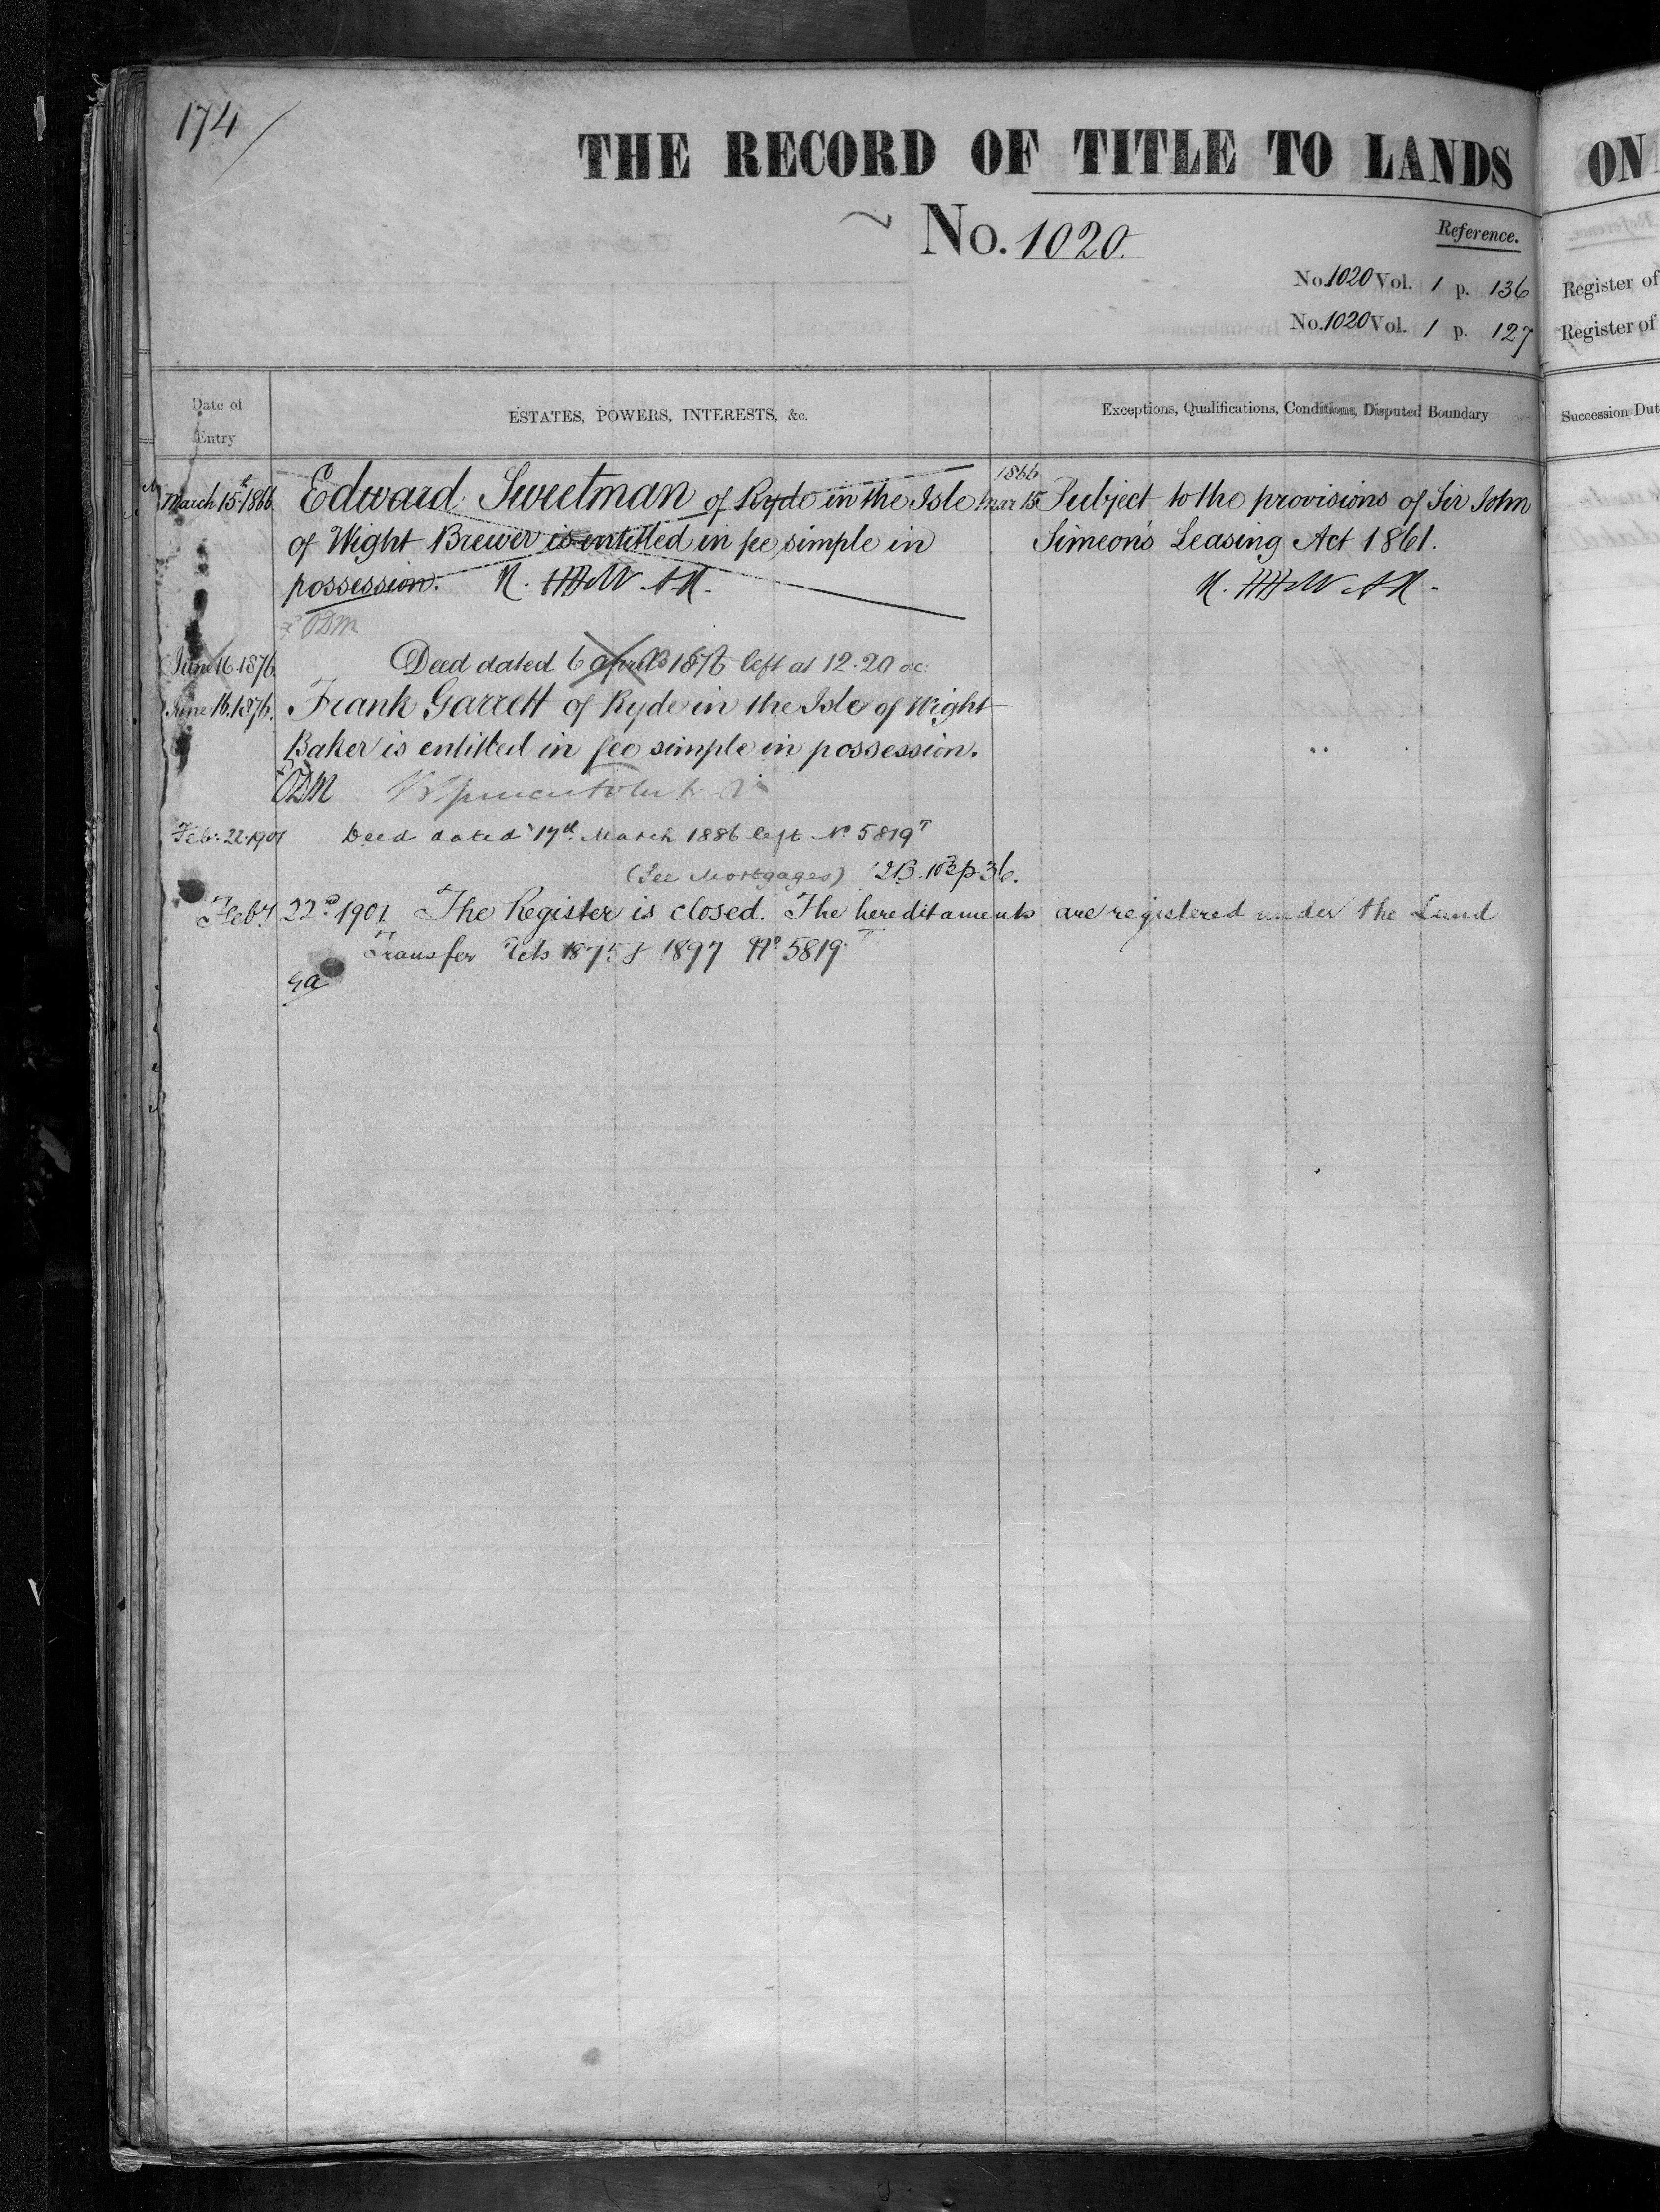 174
THE RECORD OF TITLE TO LANDS
ON
No. 1020.
Reference.
No. 1020 Vol. 1 p. 136
Register of
No. 1020 Vol. 1 p. 127
Register of
Date of Entry
ESTATES, POWERS, INTERESTS, &c.
Exceptions, Qualifications, Conditions, Disputed Boundary
Succession Dut
March 15th 1866
Edward Sweetman of Ryde in the Isle
of Wight Brewer is entitled in fee simple in
possession.
1866
Mar 15 Subject to the provisions of Sir John
Simeon's Leasing Act 1861.
ODM
June 16 1876. Deed dated 6 April 1876 left at 12.20 oc:
June 16. 1876. Frank Garrett of Ryde in the Isle of Wight
Baker is entitled in fee simple in possession.
ODM
Feb: 22. 1901 Deed dated 17th March 1886 left No 5819 T
(See Mortgages) p 36.
Feby. 22nd 1901. The Register is closed. The hereditaments are registered under the Land
Transfer Acts 1875 & 1897 No 5819 T